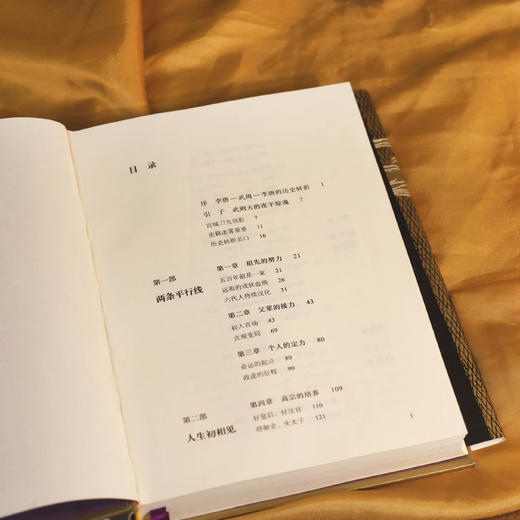 目 录
序 李唐—武周—李唐的历史转折 1
引 子 武则天的夜半惊魂 7
宫城刀光剑影 7
史籍迷雾重重 11
历史转折关口 16
第一部
两条平行线
第一章 祖先的努力 21
五百年前是一家 21
远祖的戎狄血统 26
六代人持续汉化 31
第二章 父辈的接力 43
初入官场 43
贞观变局 69
第三章 个人的定力 80
命运的起点 80
政途的征程 90
第二部
人生初相见
第四章 高宗的培养 109
好皇后，好法官 110
得御史，失太子 121
1